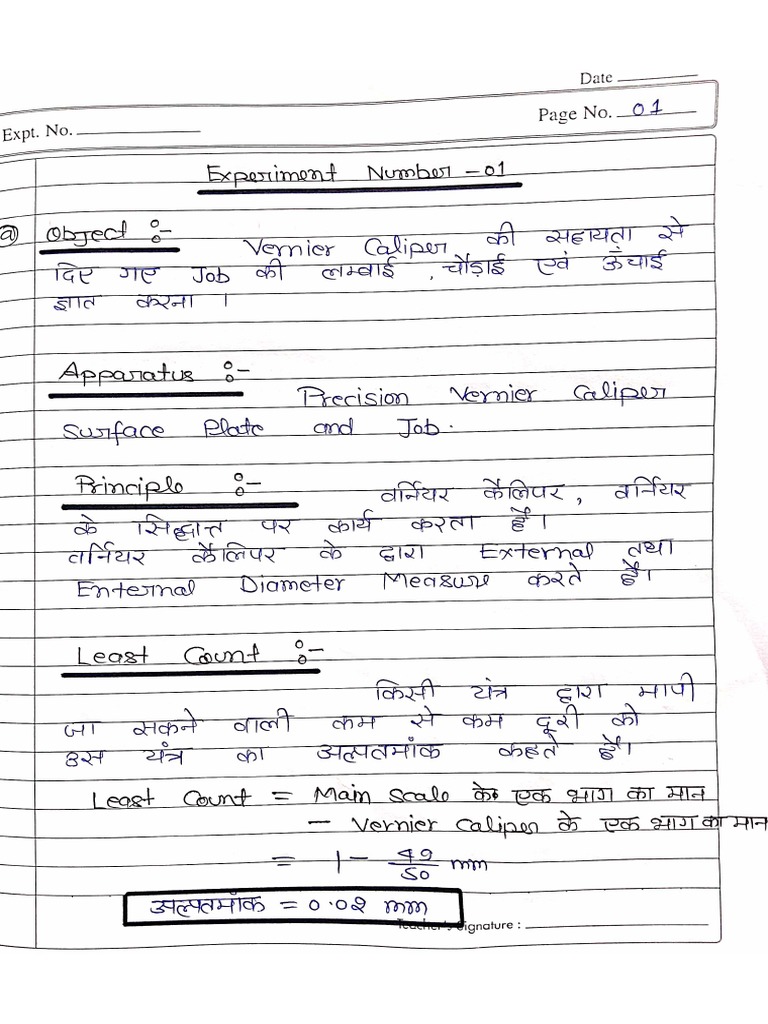 Date
Expt. No.
Page No. 01
Experiment Number - 01
a) Object :- Vernier Caliper की सहायता से
दिए गए Job की लम्बाई , चौड़ाई एवं ऊँचाई
ज्ञात करना ।
Apparatus :-
Precision Vernier Caliper
Surface Plate and Job.
Principle :- वर्नियर कैलिपर , वर्नियर
के सिद्धान्त पर कार्य करता है।
वर्नियर कैलिपर के द्वारा External तथा
Enternal Diameter Measure करते है।
Least Count :-
किसी यंत्र द्वारा मापी
जा सकने वाली कम से कम दूरी को
उस यंत्र का अल्पतमांक कहते है।
Least Count = Main Scale के एक भाग का मान
- Vernier Caliper के एक भाग का मान
= 1 - 49/50 mm
अल्पतमांक = 0.02 mm
Teacher's Signature :